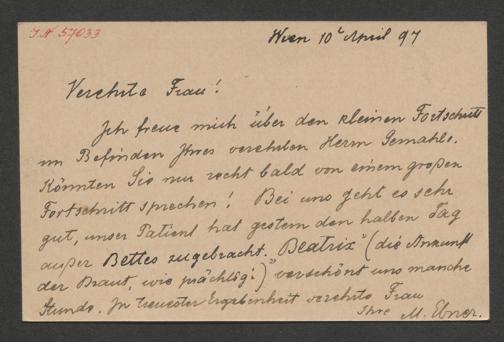 J.N. 57033
Wien 10t April 97
Verehrte Frau!
Ich freue mich über den kleinen Fortschritt
im Befinden Ihres verehrten Herrn Gemahls.
Könnten Sie nur recht bald von einem großen
Fortschritt sprechen! Bei uns geht es sehr
gut, unser Patient hat gestern den halben Tag
außer Bettes zugebracht. „Beatrix" (die Ankunft
der Braut, wie prächtig!) verschönt uns manche
Stunde. In treuester Ergebenheit verehrte Frau
Ihre M. Ebner.